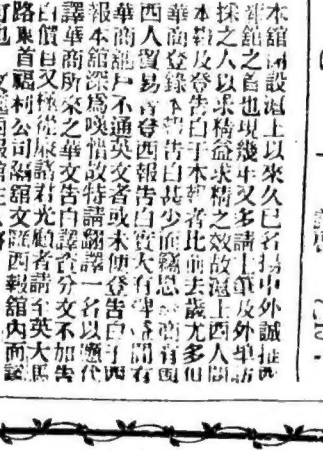 本館開設滬上以來久已名揚中外誠推西
報館之首也現幾年又多請主筆及外埠訪
採之人以求精益求精之效故滬上西人閱
本報及登告白于本報者比前去歲尤多但
華商登錄本報告白甚少而竊思華商有與
西人貿易者登西報告白實大有裨益間有
華商舖戶不通英文者或未便登告白于西
報本館深爲嘆惜故特請翻譯一名以應代
譯華商所來之華文告白譯資分文不加告
白價目又極從廉諸君光顧者請至英大馬
路泉首福利公司隔壁文匯西報館內面議
可也